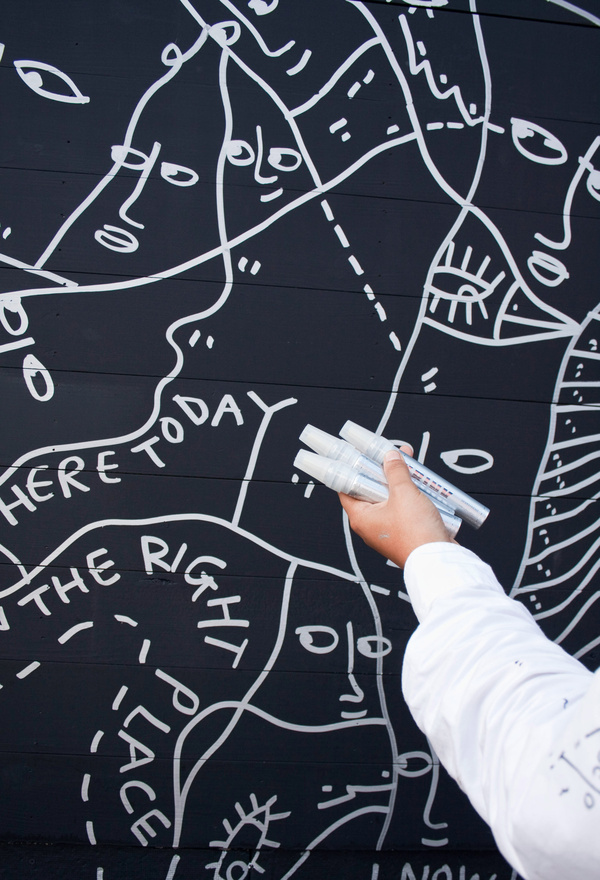 HERE TODAY
THE RIGHT
PLACE
NOW